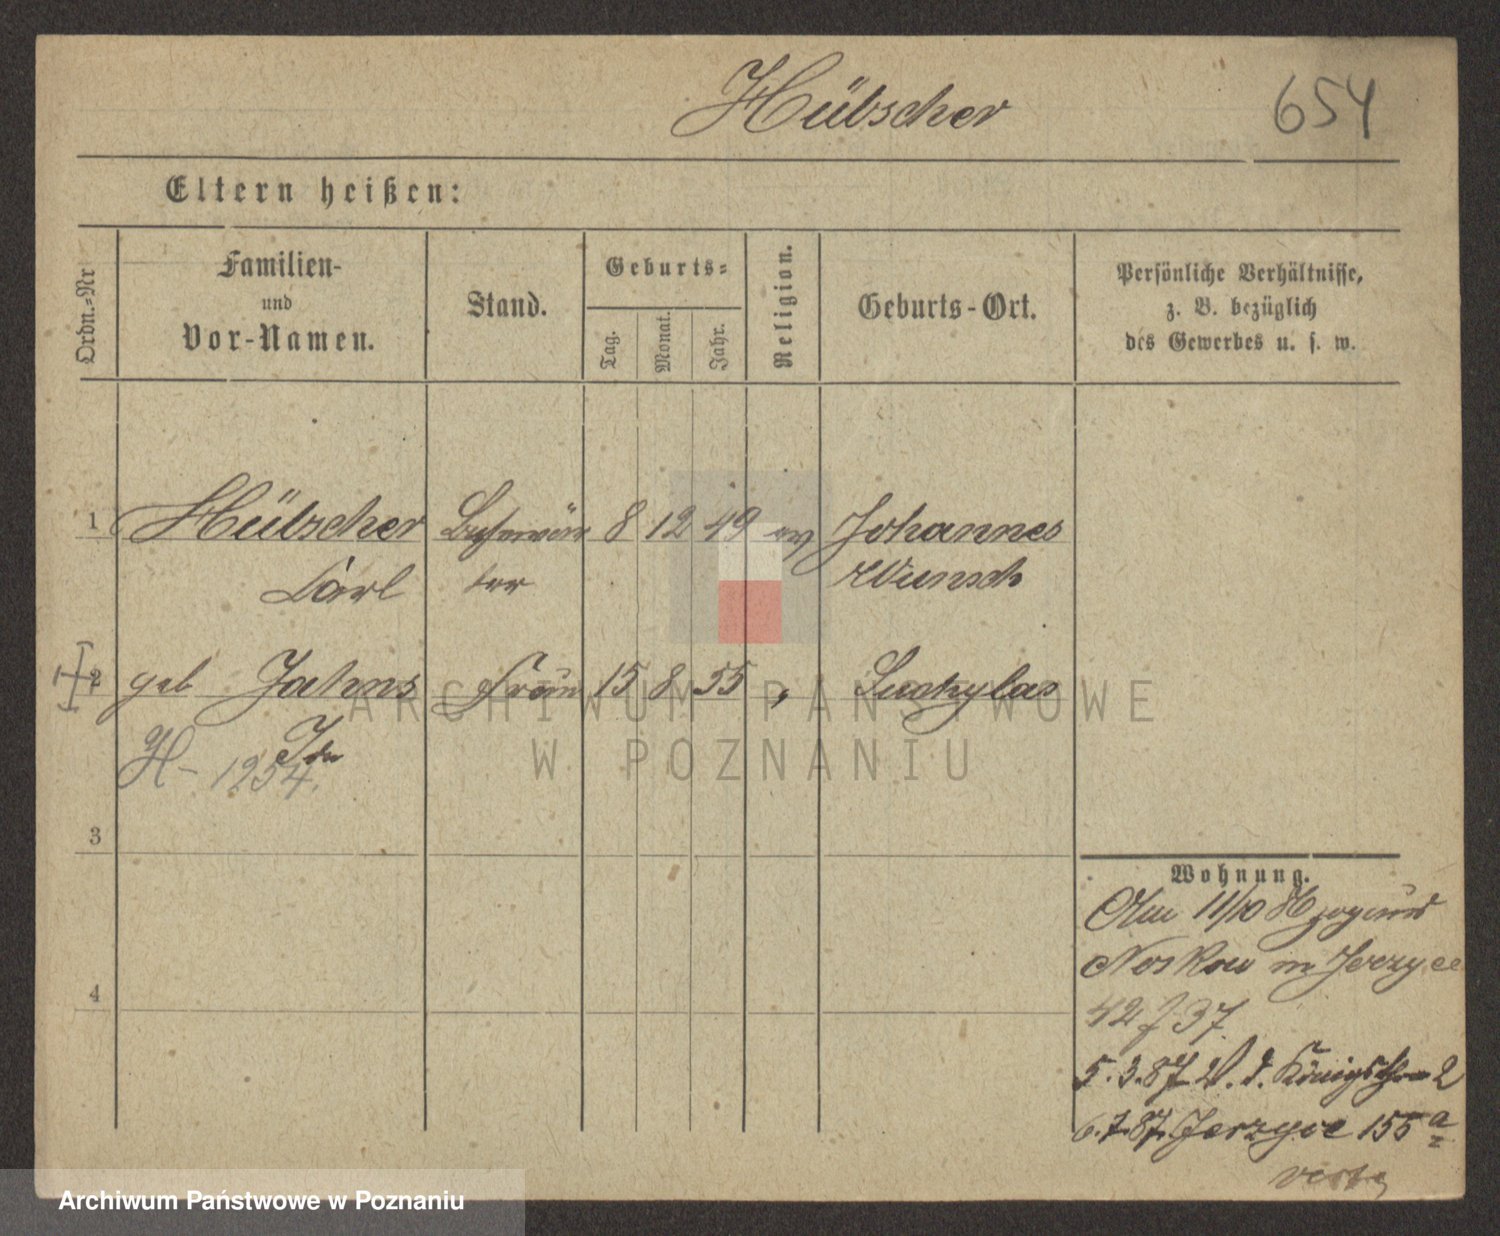 Hübscher
654
Eltern heißen:
Ordn.-Nr
Familien-
und
Vor-Namen.
Stand.
Geburts-
Tag.
Monat.
Jahr.
Religion.
Geburts-Ort.
Persönliche Verhältnisse,
z. B. bezüglich
des Gewerbes u. s. w.
1 Hübscher 8 12 49 ev Johannes
Carl ter Wunsch
2 geb Jahns Frau 15 8 55 "
Ida
H - 1254.
3
4
Wohnung.
11/10
in Jerzyce
42 J 37
5.3.87 V. d. Königsthor 2
6.7.87. Jerzyce 155 a
verte
ARCHIWUM PAŃSTWOWE
W POZNANIU
Archiwum Państwowe w Poznaniu